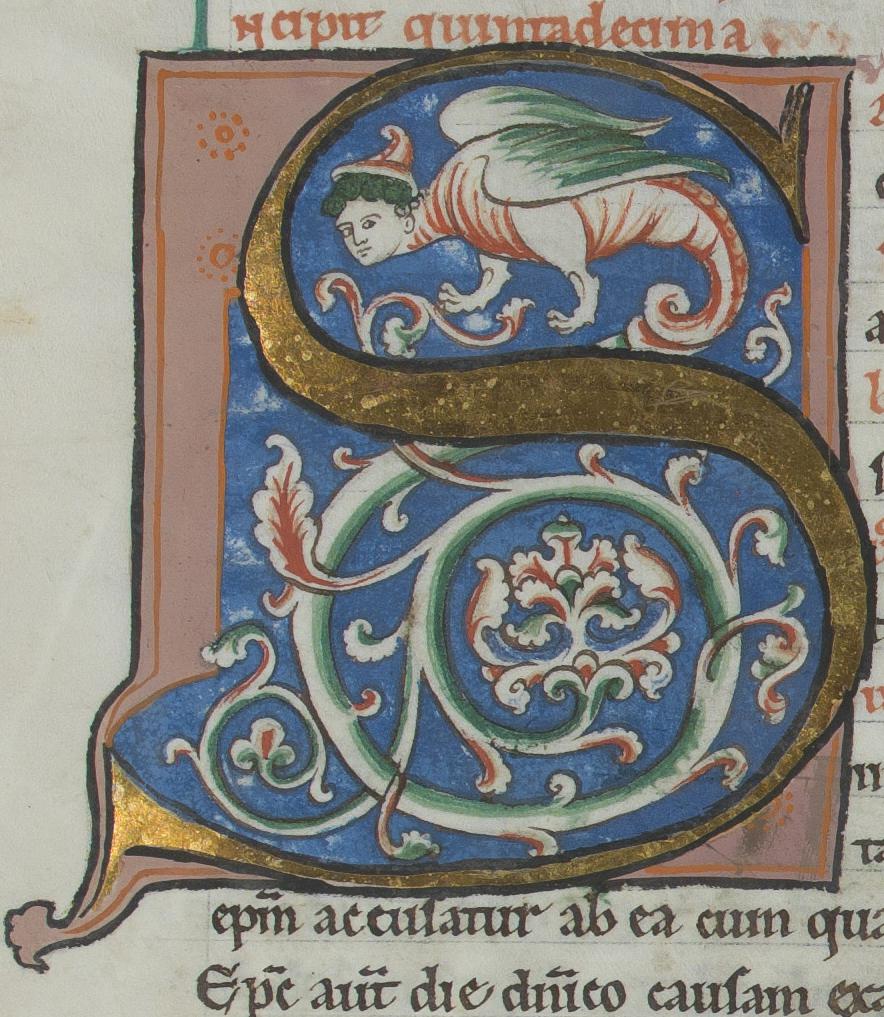 Incipit quintadecima
S
epm̄ accusatur ab ea cum qua
Ep̄c aūt die dn̄ico causam exa